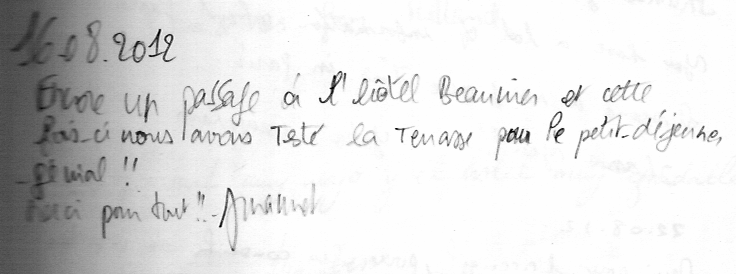 16.08.2012
Encore un passage à l'hôtel Beaumier et cette
fois-ci nous avons testé la terrasse pour le petit-déjeuner,
génial !!
Merci pour tout !! -